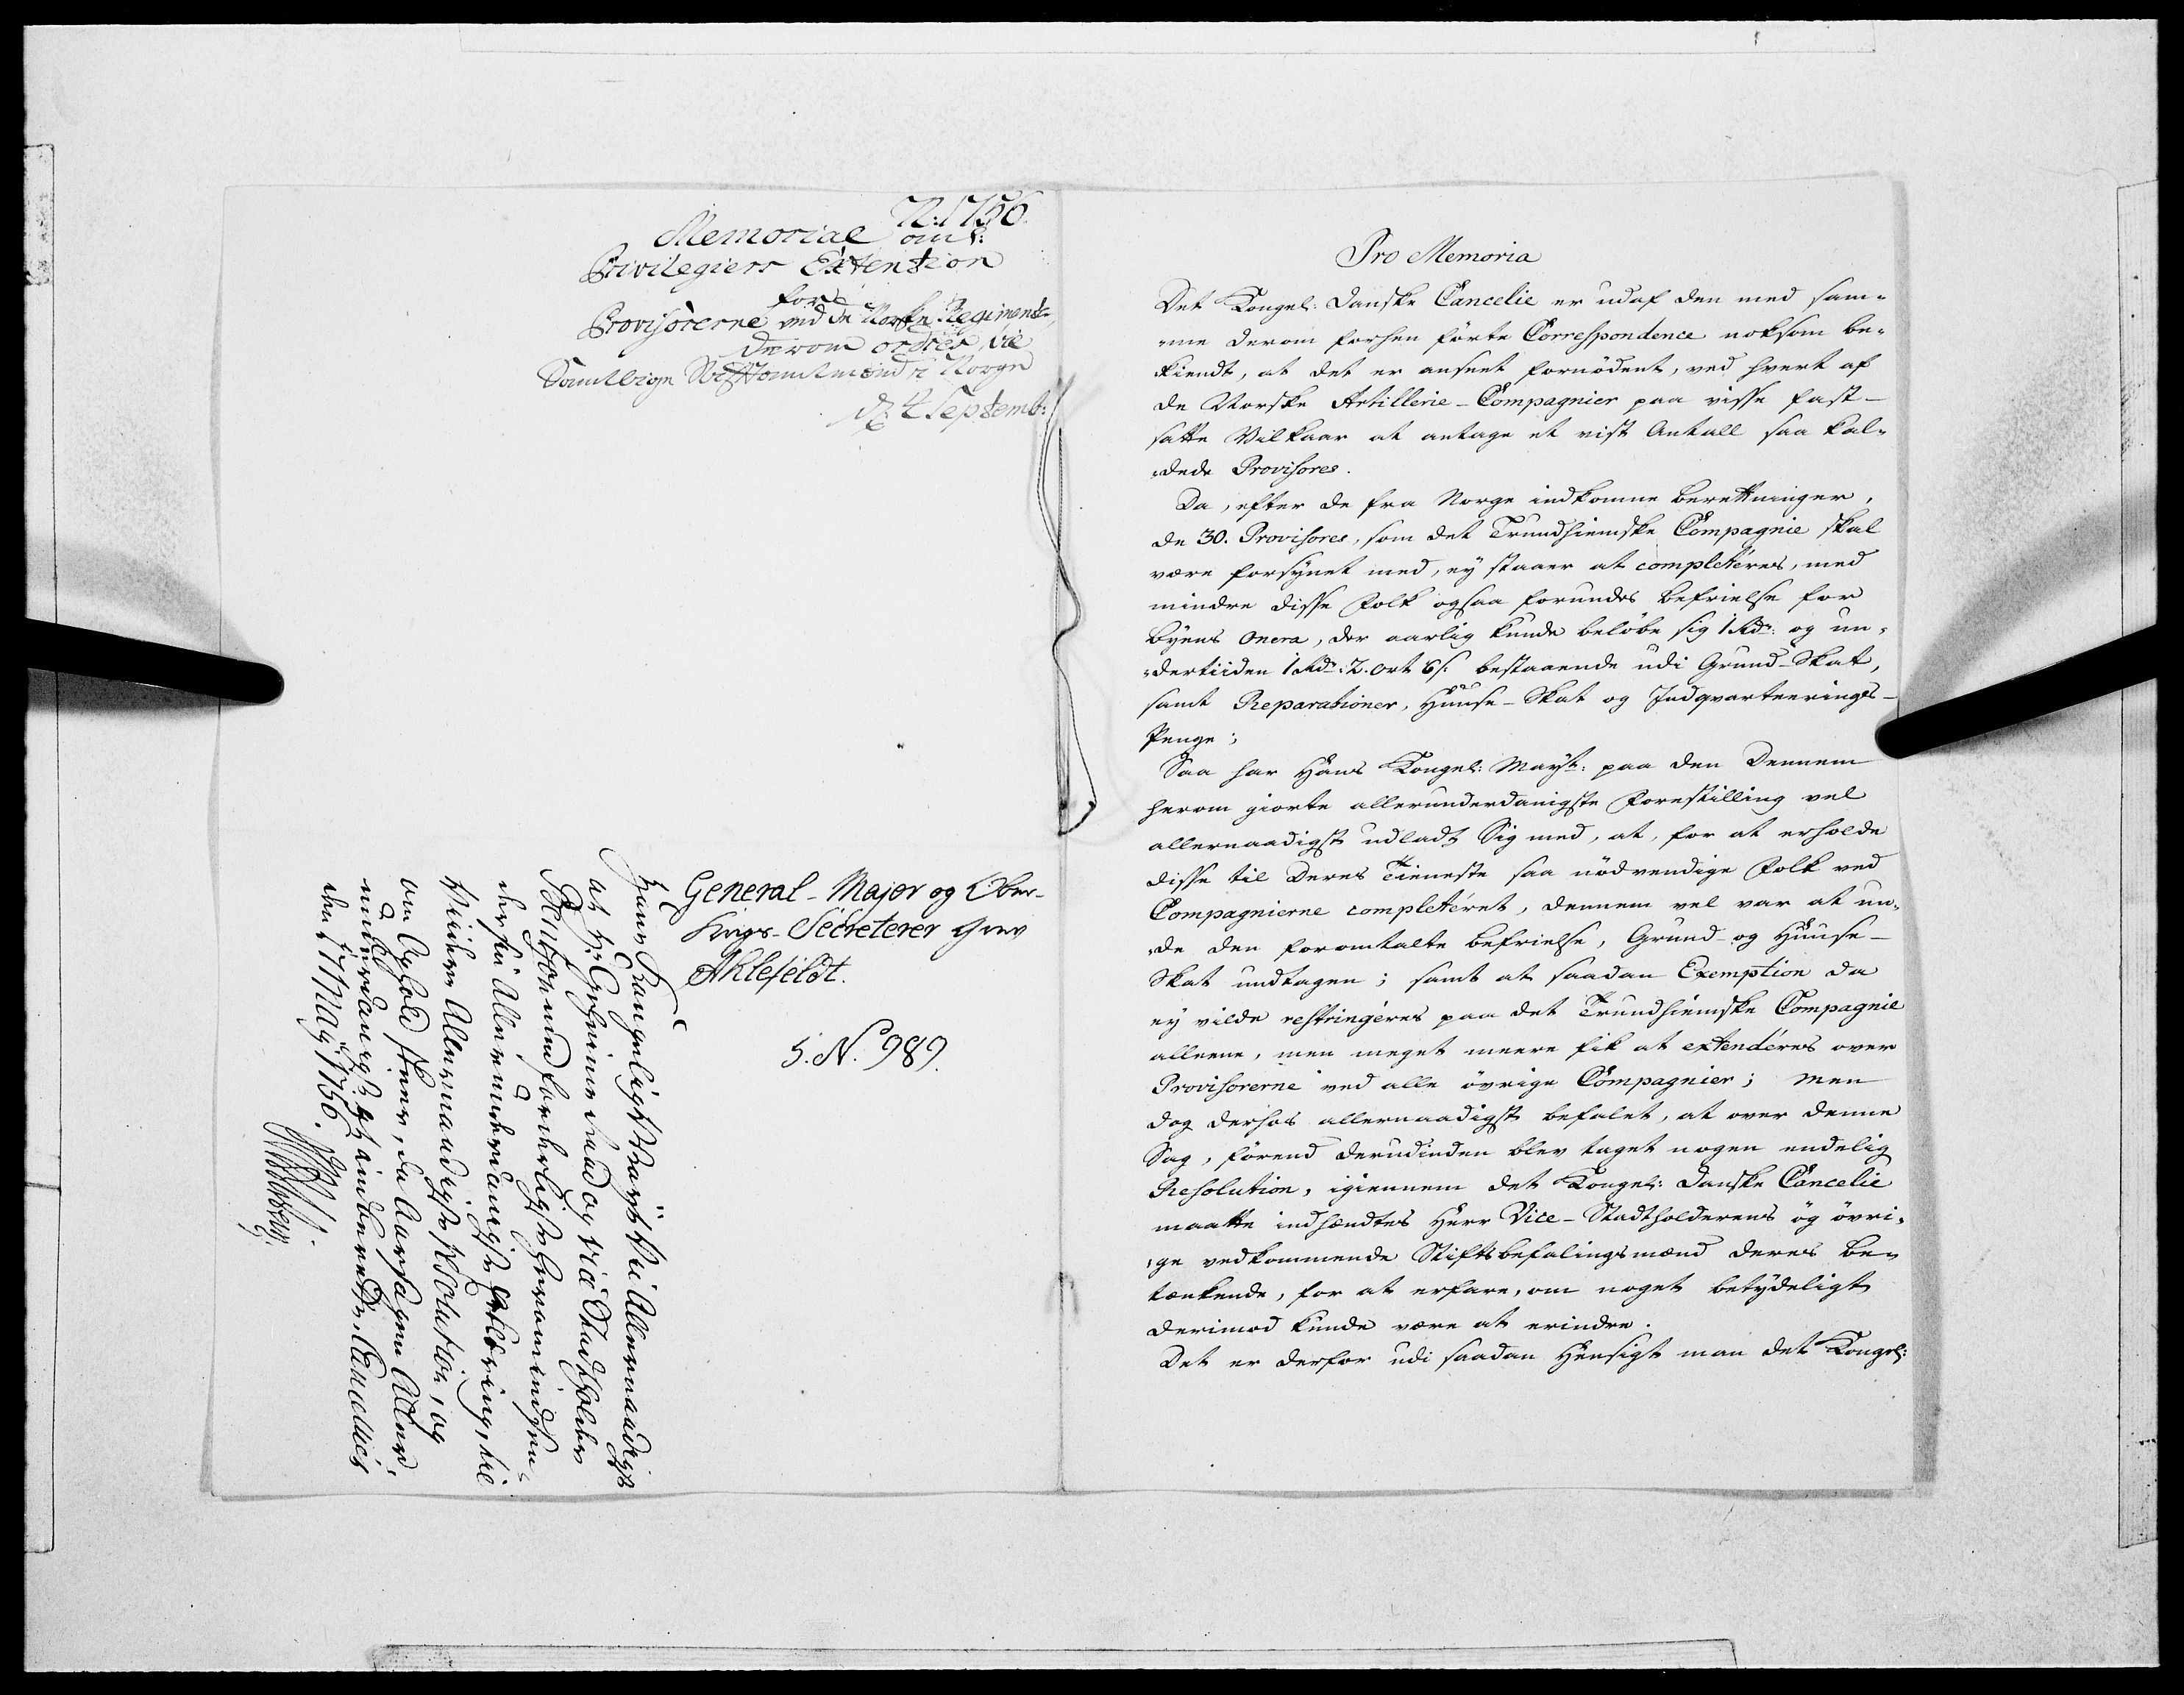 N: 1756.
Memorial om
Privilegiers Extention
for
Provisorerne ved de Norske Regimenter,
derom ordres til
Samtlige Stiftamtmænd i Norge
d: 4 Septemb:
General-Major og Ober-
Krigs-Secreterer Grev
Ahlefeldt.
5. N. 989.
Hans Kongelig Mayt: vil Allernaadigst
at Hr: Geheime Raad og Vice Stadtholder
Benzon med forderligst herom indhen-
der sin Allerunderdanigste Erklæring, til
Videre Allernaadigste Resolution, og
om Ophold skeer, da Aarsagen Aller-
underdanigst at indberette. Cancelliet
den 17 May 1756.
Pro Memoria
Det Kongel: Danske Cancelie er udaf den med sam-
-me derom forhen førte Correspondence noksom be-
kiendt, at det er anseet fornødent, ved hvert af
de Norske Artillerie-Compagnier paa visse fast-
satte Vilkaar at antage et vist Antall saa kal-
-dede Provisores.
Da, efter de fra Norge indkomne beretninger,
de 30. Provisores, som det Trundhiemske Compagnie skal
være forsynet med, ey staaer at completeres, med
mindre disse Folk ogsaa forundes befrielse for
Byens onera, der aarlig kunde beløbe sig 1 Rdr: og un-
-dertiiden 1 Rdr: 2. ort 6 s: bestaaende udi Grund-Skat,
samt Reparationer, Huuse-Skat og Indqvarteerings-
Penge;
Saa har Hans Kongel: Mayt: paa den Dennem
herom giorte allerunderdanigste Forestilling vel
allernaadigst udladt Sig med, at, for at erholde
disse til Deres Tieneste saa nødvendige Folk ved
Compagnierne completeret, dennem vel var at un-
-de den foromtalte befrielse, Grund- og Huuse-
Skat undtagen; samt at saadan Exemption da
ey vilde restringeres paa det Trundhiemske Compagnie
alleene, men meget meere fik at extenderes over
Provisorerne ved alle øvrige Compagnier; Men
dog derhos allernaadigst befalet, at over denne
Sag, førend derudinden blev taget nogen endelig
Resolution, igiennem det Kongel: Danske Cancelie
maatte indhændtes Herr Vice-Stadtholderens og øvri-
-ge vedkommende Stiftsbefalingsmænd deres be-
tænkende, for at erfare, om noget betydeligt
derimod kunde være at erindre.
Det er derfor udi saadan Hensigt man det Kongel: